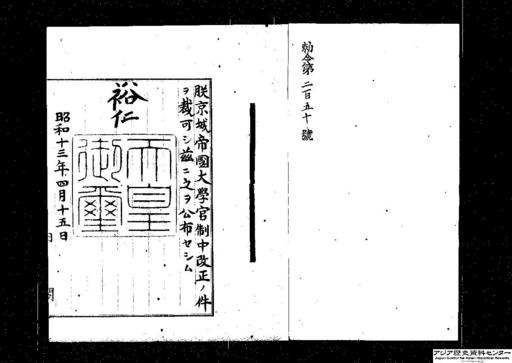 勅令第二百五十號
朕京城帝國大學官制中改正ノ件
ヲ裁可シ茲ニ之ヲ公布セシム
裕仁
天皇御璽
昭和十三年四月十五日
アジア歴史資料センター
Japan Center for Asian Historical Records